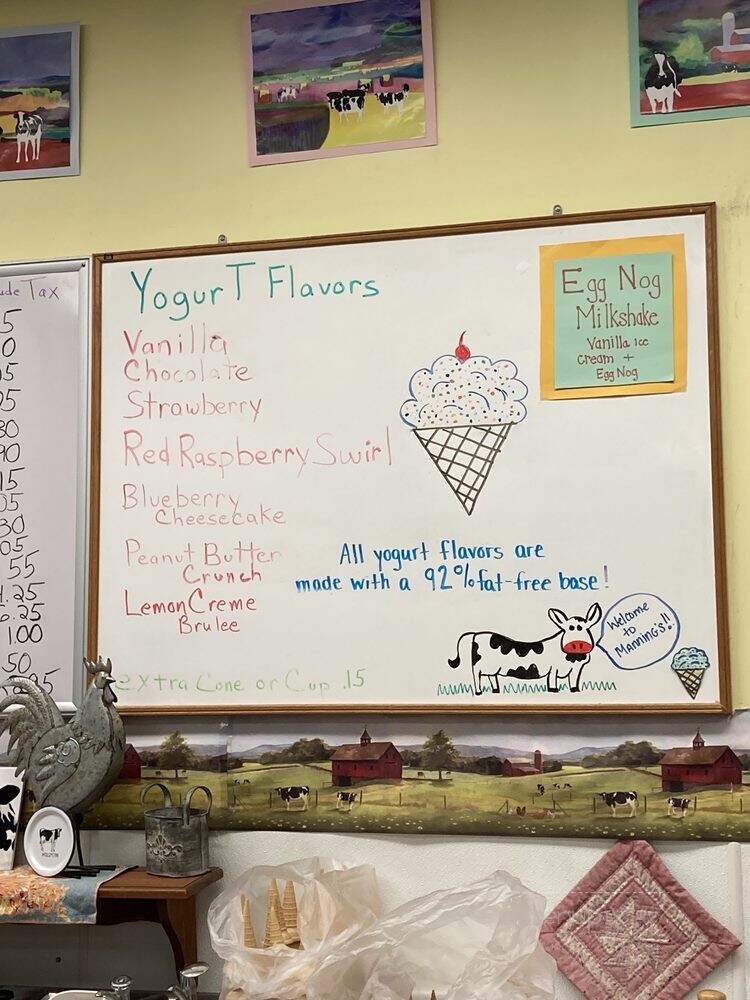 ude Tax
5
0
5
5
30
90
15
05
30
05
.55
1.25
6.25
1.00
.50
YogurT Flavors
Vanilla
Chocolate
Strawberry
Red Raspberry Swirl
Blueberry
Cheesecake
Peanut Butter
Crunch
Lemon Creme
Brulee
extra Cone or Cup .15
Egg Nog
Milkshake
Vanilla ice
cream +
Egg Nog
All yogurt flavors are
made with a 92% fat-free base!
Welcome
to
Manning's!!